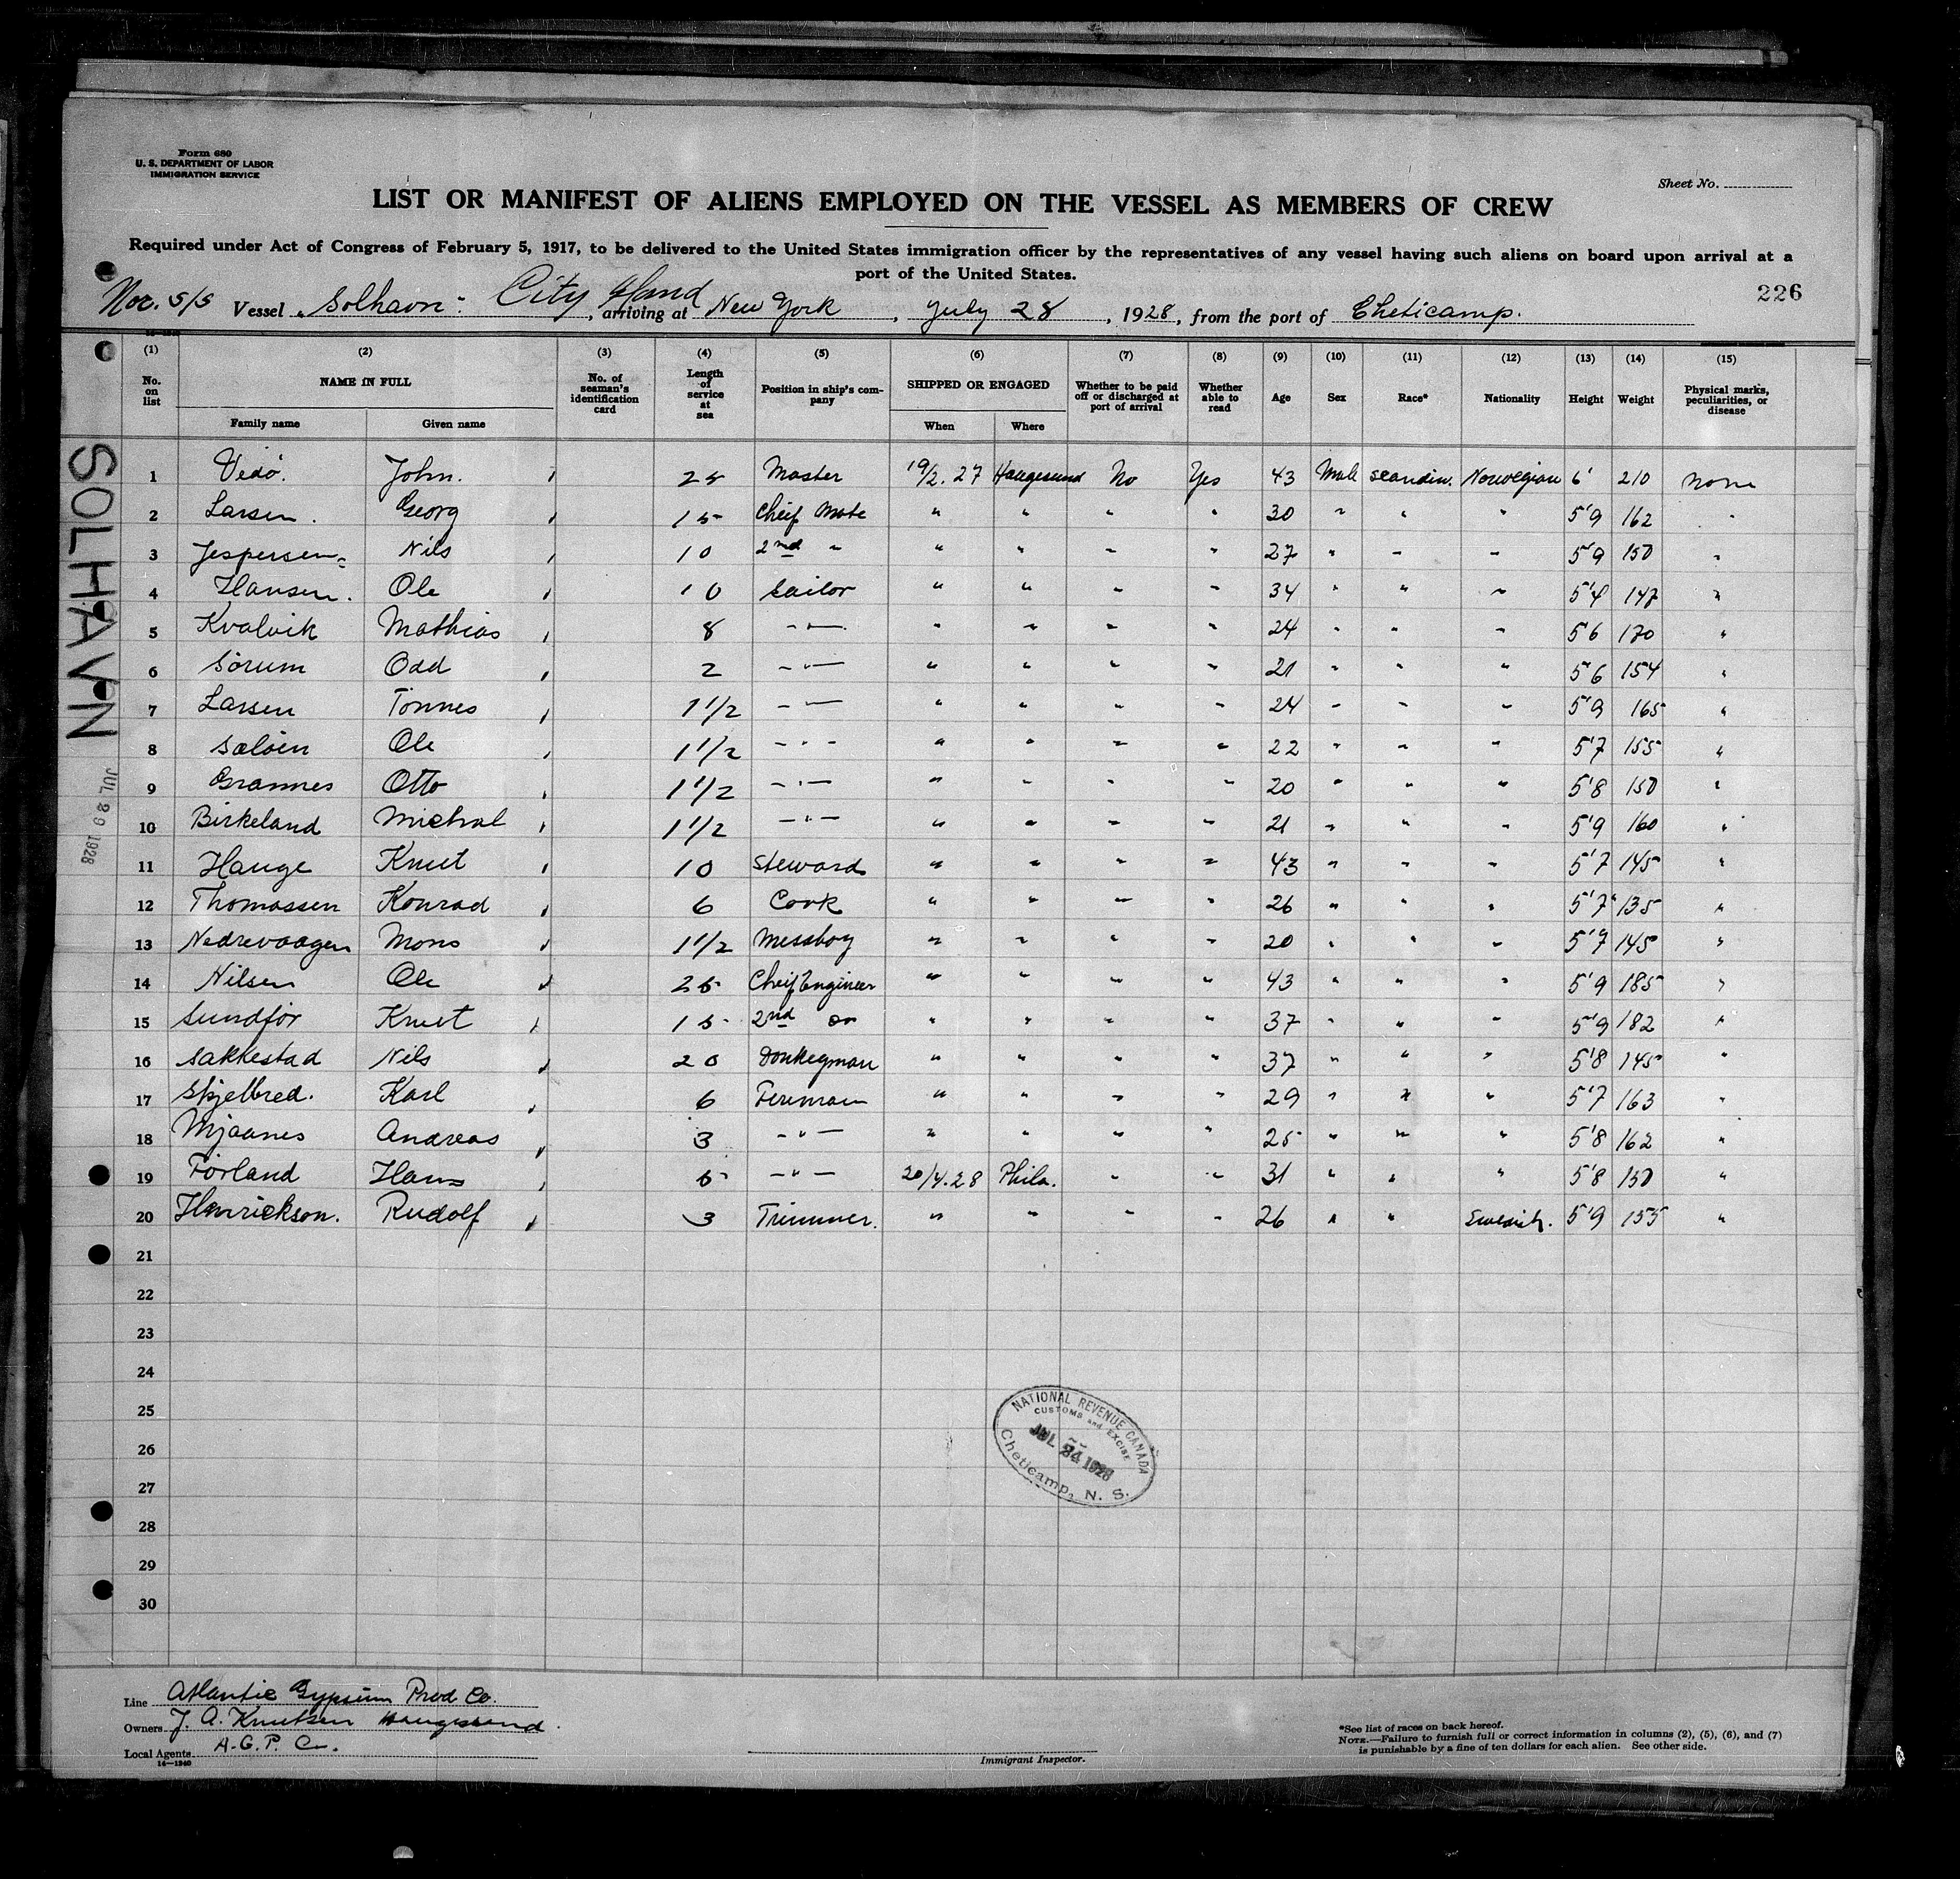 Form 680
U. S. DEPARTMENT OF LABOR
IMMIGRATION SERVICE
Sheet No.
LIST OR MANIFEST OF ALIENS EMPLOYED ON THE VESSEL AS MEMBERS OF CREW
Required under Act of Congress of February 5, 1917, to be delivered to the United States immigration officer by the representatives of any vessel having such aliens on board upon arrival at a
port of the United States.
226
Nor. S/S Vessel "Solhavn" City Island, arriving at New York, July 28, 1928, from the port of Cheticamp.
(1) (2) (3) (4) (5) (6) (7) (8) (9) (10) (11) (12) (13) (14) (15)
No. on list NAME IN FULL Family name Given name No. of seaman's identification card Length of service at sea Position in ship's company SHIPPED OR ENGAGED When Where Whether to be paid off or discharged at port of arrival Whether able to read Age Sex Race* Nationality Height Weight Physical marks, peculiarities, or disease
1 Vedö. John. 25 Master 19/2.27 Haugesund No Yes 43 Male Scandin. Norwegian 6' 210 None
2 Larsen. Georg 15 Cheif Mate " " " " 30 " " " 5'9 162 "
3 Jespersen Nils 10 2nd " " " " " 27 " " " 5'9 150 "
4 Hansen. Ole 10 Sailor " " " " 34 " " " 5'4 147 "
5 Kvalvik Mathias 8 -"- " " " " 24 " " " 5'6 170 "
6 Sörum Odd 2 -"- " " " " 21 " " " 5'6 154 "
7 Larsen Tönnes 1 1/2 -"- " " " " 24 " " " 5'9 165 "
8 Salöen Ole 1 1/2 -"- " " " " 22 " " " 5'7 155 "
9 Grannes Otto 1 1/2 -"- " " " " 20 " " " 5'8 150 "
10 Birkeland Michal 1 1/2 -"- " " " " 21 " " " 5'9 160 "
11 Hauge Knut 10 Steward " " " " 43 " " " 5'7 145 "
12 Thomassen Konrad 6 Cook " " " " 26 " " " 5'7" 135 "
13 Nedrevaagen Mons 1 1/2 Messboy " " " " 20 " " " 5'7 145 "
14 Nilsen Ole 25 Cheif Engineer " " " " 43 " " " 5'9 185 "
15 Sundför Knut 15 2nd do " " " " 37 " " " 5'9 182 "
16 Sakkestad Nils 20 Donkeyman " " " " 37 " " " 5'8 145 "
17 Skjelbred. Karl 6 Fireman " " " " 29 " " " 5'7 163 "
18 Mjaanes Andreas 3 -"- " " " " 25 " " " 5'8 162 "
19 Förland Hans 6 -"- 20/4.28 Phila. " " 31 " " " 5'8 150 "
20 Henrickson. Rudolf 3 Trimmer. " " " " 26 " " Swedish. 5'9 155 "
21
22
23
24
25
26
27
28
29
30
SOLHAVN
JUL 29 1928
NATIONAL REVENUE CANADA
CUSTOMS and EXCISE
JUL 24 1928
Cheticamp, N. S.
Line Atlantic Gypsum Prod Co.
Owners J. A. Knutsen Haugesund.
Local Agents A.G.P. Co.
14—1240
Immigrant Inspector.
*See list of races on back hereof.
NOTE.—Failure to furnish full or correct information in columns (2), (5), (6), and (7)
is punishable by a fine of ten dollars for each alien. See other side.